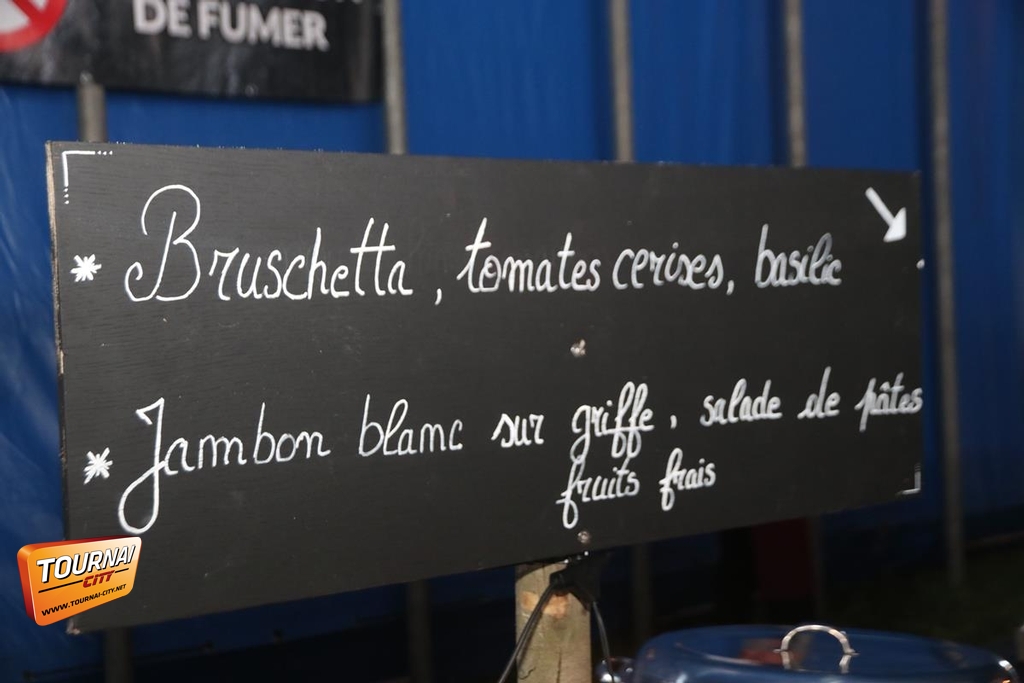 DE FUMER
* Bruschetta, tomates cerises, basilic
* Jambon blanc sur griffe, salade de pâtes
fruits frais
TOURNAI
CITY
WWW.TOURNAI-CITY.NET